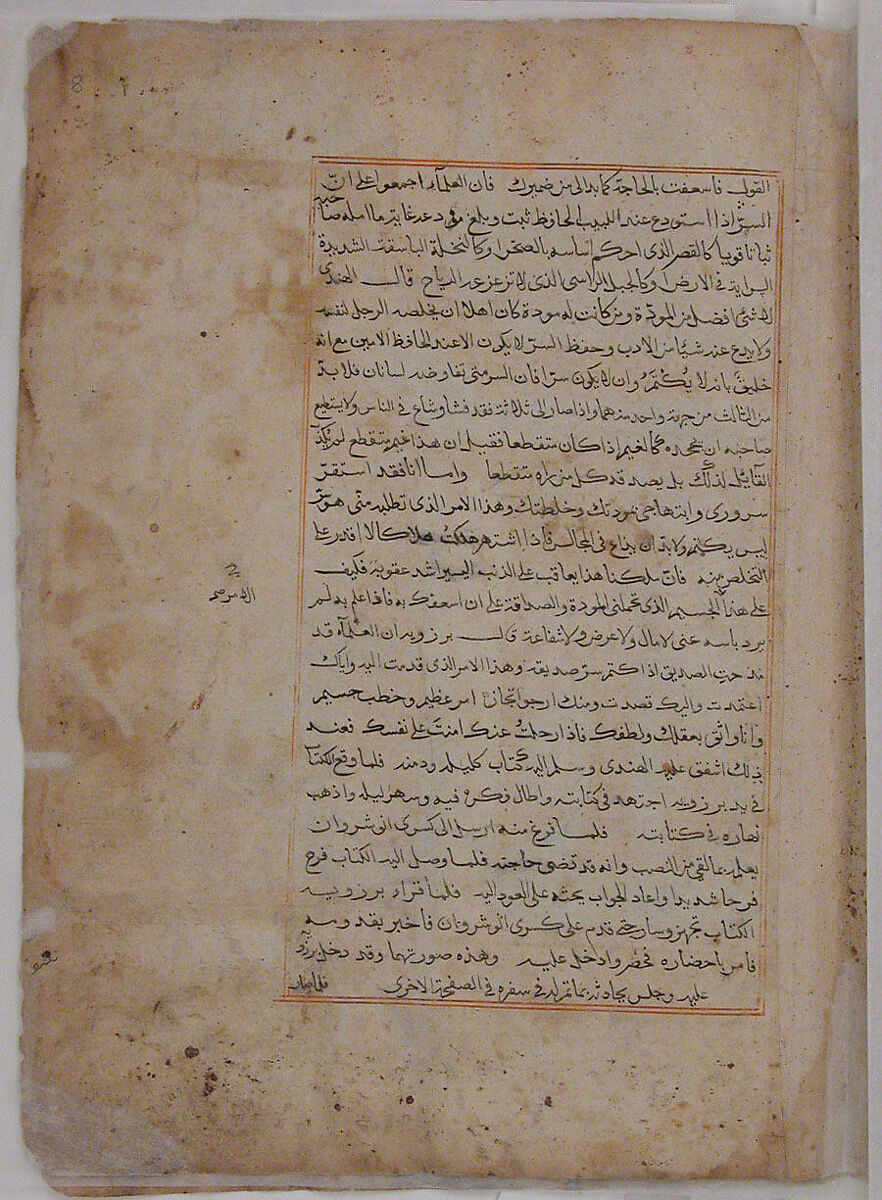 القول فاسعفت بالحاجة كما بدا لي من ضميرك فان العلمآء اجمعوا على انّ
السرّ اذا استودع عند اللبيب الحافظ ثبت وبلغ مودعه غاية ما امله صاحبه
ثباتا قويا كالقصر الذى احكم اساسه بالصخر او كالنخلة الباسقة الشديدة
فى الارض او كالجبل الراسى الذى لا تزعزعه الرياح قال الهندى
لا شئ افضل من المودّة ومن كانت له مودة كان اهلا ان يخلصه الرجل لنفسه
ولا يدع عنه شيئا من الادب وحفظ السرّ لا يكون الا عند الحافظ الامين مع انه
خليق بانه لا يُكْتَمُ وان لا يكون سرّا فان السر متى تفاوضه لسانان فلا بدّ
من الثالث من جهة واحد منهما واذا صار الى ثلاثة فقد فشا وشاع فى الناس ولا يستطيع
صاحبه ان يجحده كالغيم اذا كان متقطعا فقيل ان هذا غيم متقطع لم يكذّب
القآئل لذلك بل يصدقه كل من يراه متقطعا واما انا فقد استقرّ
سرورى وابتهاجى بمودتك وخلطتك وهذا الامر الذى تطلبه منى هو سرّ
ليس يكتم ولا بدّ ان يذاع فى المجالس فاذا اشتهر هلكت هلاكا لا اقدر على
التخلص منه فانّ ملكنا هذا يعاقب على الذنب اليسير اشد عقوبة فكيف
على هذا الجسيم الذى تحملنى المودة والصداقة على ان اسعفك به فاذا علم به لم
يرد باسه عنى لا مال ولا عرض ولا شفاعة قال برزويه ان العلمآء قد
مدحت الصديق اذا كتم سرّ صديقه وهذا الامر الذى قدمت اليه واياك
اعتمدت واليك قصدت ومنك ارجو انجازه امر عظيم وخطب جسيم
وانا واثق بعقلك ولطفك فاذا رحلتُ عنك امنتَ على نفسك فعند
ذلك اشفق عليه الهندى وسلم اليه كتاب كليله ودمنه فلما وقع الكتاب
فى يد برزويه اجتهد فى كتابته واطال فكره فيه وسهر ليله واذهب
نهاره فى كتابته فلما فرغ منه ارسل الى كسرى انوشروان
يعلمه بما لقى من النصب وانه قد قضى حاجته فلما وصل اليه الكتاب فرح
فرحا شديدا واعاد الجواب يحثه على العود اليه فلما قراء برزويه
الكتاب تجهز وسار حتى قدم على كسرى انوشروان فاخبر بقدومه
فامر باحضاره فحضر وادخل عليه وهذه صورتهما وقد دخل برزويه
عليه وجلس يحادثه بما تم له فى سفره فى الصفحة الاخرى
فلما صار
الامر صح
8